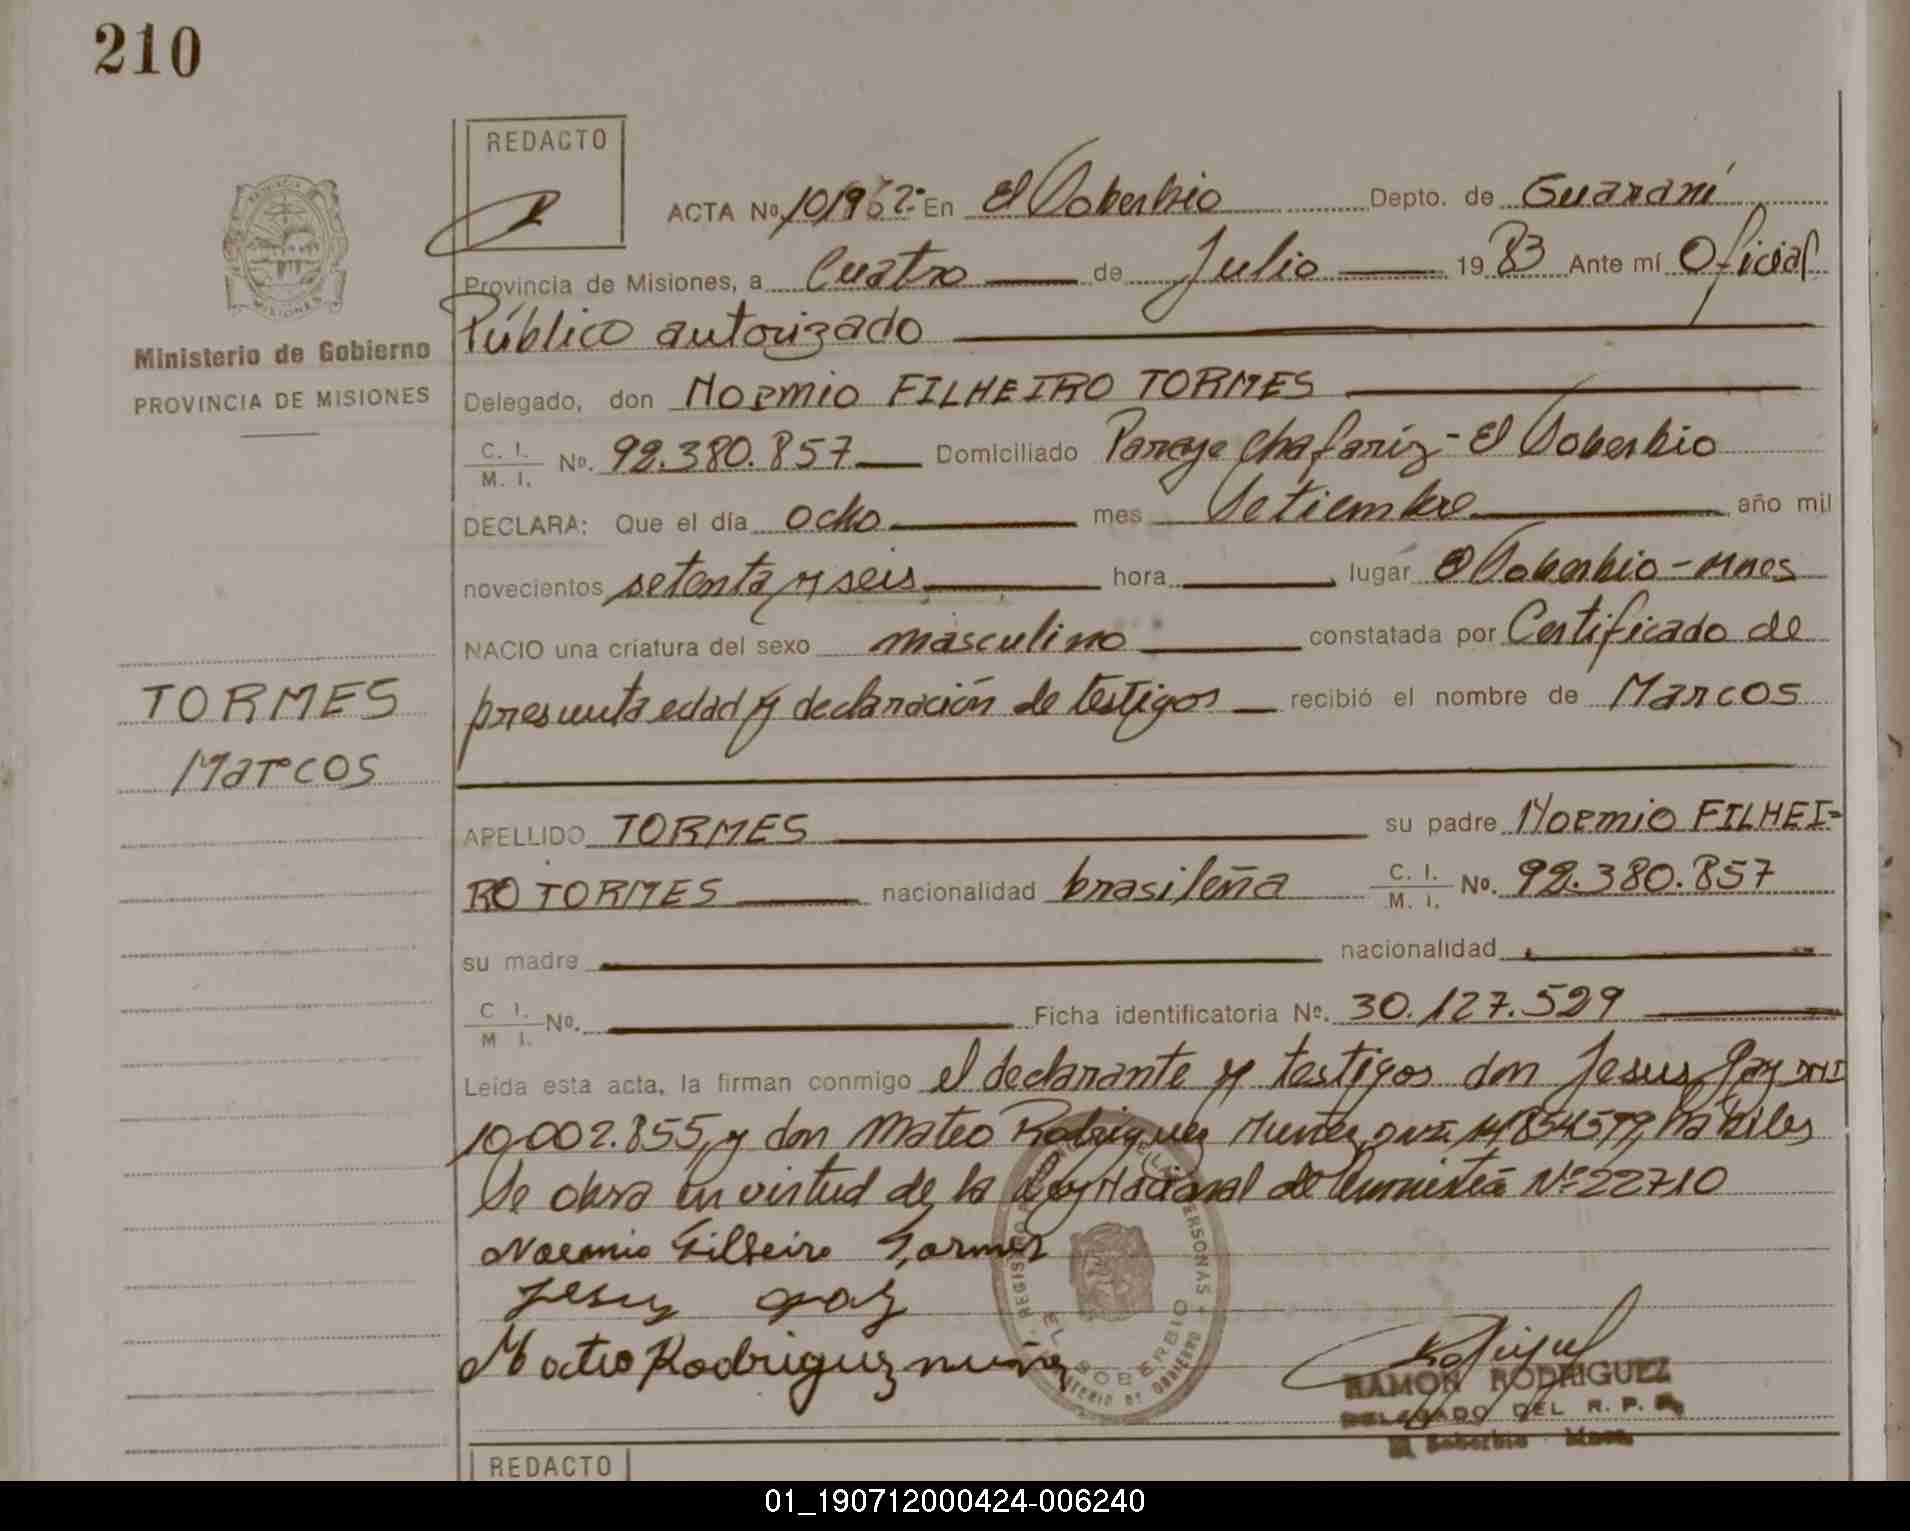 210
REDACTO
ACTA Nº 101962: En El Soberbio Depto. de Guaraní
Provincia de Misiones, a Cuatro de Julio 1983 Ante mí Oficial
Público autorizado
Ministerio de Gobierno
PROVINCIA DE MISIONES
Delegado, don Noemio FILHEIRO TORMES
C. I. M. I. Nº. 92.380.857 Domiciliado Paraje Chafariz - El Soberbio
DECLARA: Que el día ocho mes Setiembre año mil
novecientos setenta y seis hora lugar El Soberbio - Mnes
NACIO una criatura del sexo masculino constatada por Certificado de
presunta edad y declaración de testigos recibió el nombre de Marcos
TORMES
Marcos
APELLIDO TORMES su padre Noemio FILHEI-
RO TORMES nacionalidad brasileña C. I. M. I. Nº. 92.380.857
su madre nacionalidad
C I. M I. Nº. Ficha identificatoria Nº. 30.127.529
Leída esta acta, la firman conmigo el declarante y testigos don Jesus Paz DNI
10.002.855, y don Mateo Rodriguez Nuñez hábiles
Se obra en virtud de la Ley Nacional de Amnistía Nº 22710
Noemio Filheiro Tormes
Jesus Paz
Mateo Rodriguez nuñez
EL SOBERBIO
RAMON RODRIGUEZ
DELEGADO DEL R. P. P.
El Soberbio Mnes.
REDACTO
01_190712000424-006240